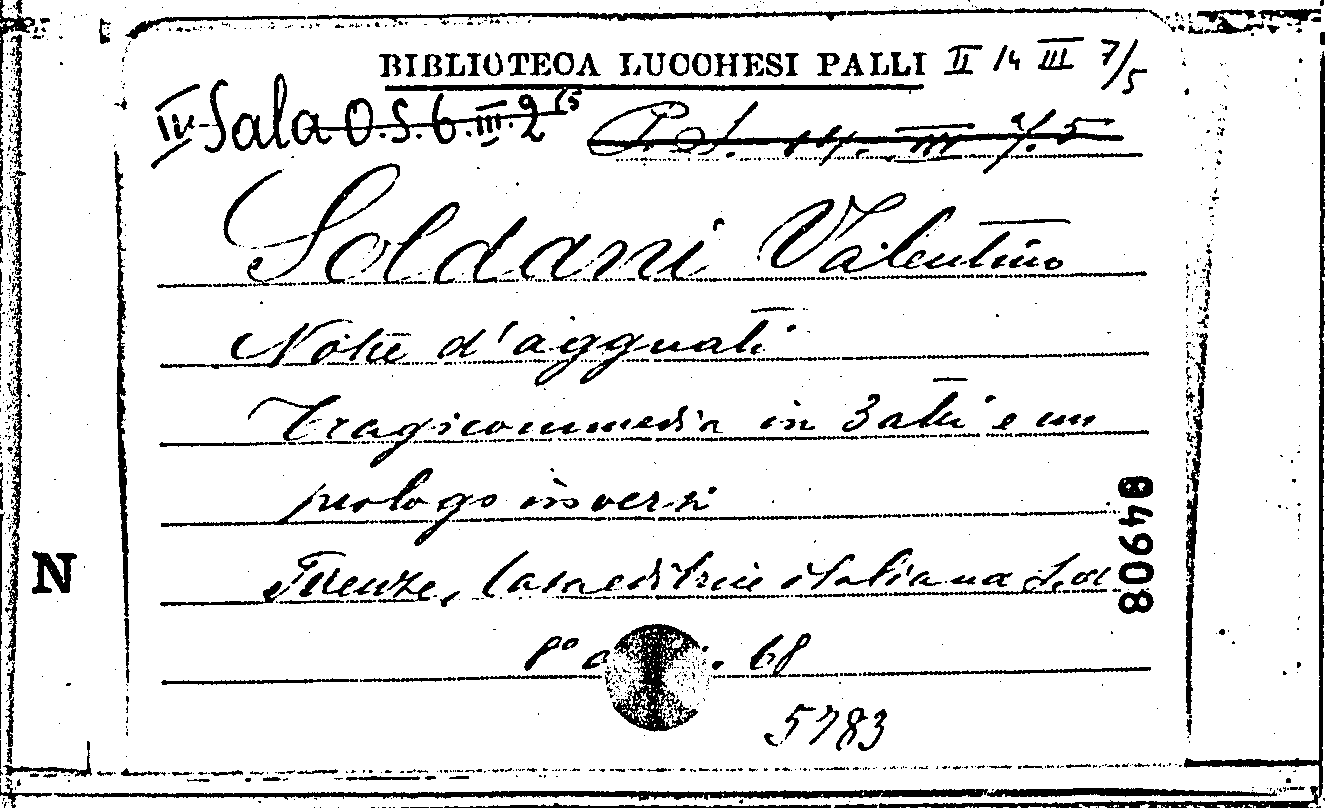 BIBLIOTECA LUCCHESI PALLI II 14 III 7/5
IV Sala O.S. 6. III. 2 15
P. S. 14. III 7. 5
Soldani Valentino
Notte d'agguati
Tragicommedia in 3 atti e un
prologo in versi
Firenze, Casa editrice italiana S. d
8° 68
5783
84908
N